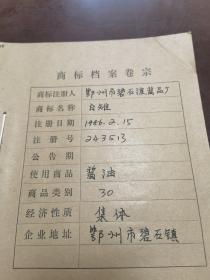 商标档案卷宗
商标注册人 鄂州市碧石渡酱品厂
商标名称
注册日期 1986.2.15
注册号 243513
公告期
使用商品 酱油
商品类别 30
经济性质 集体
企业地址 鄂州市碧石镇